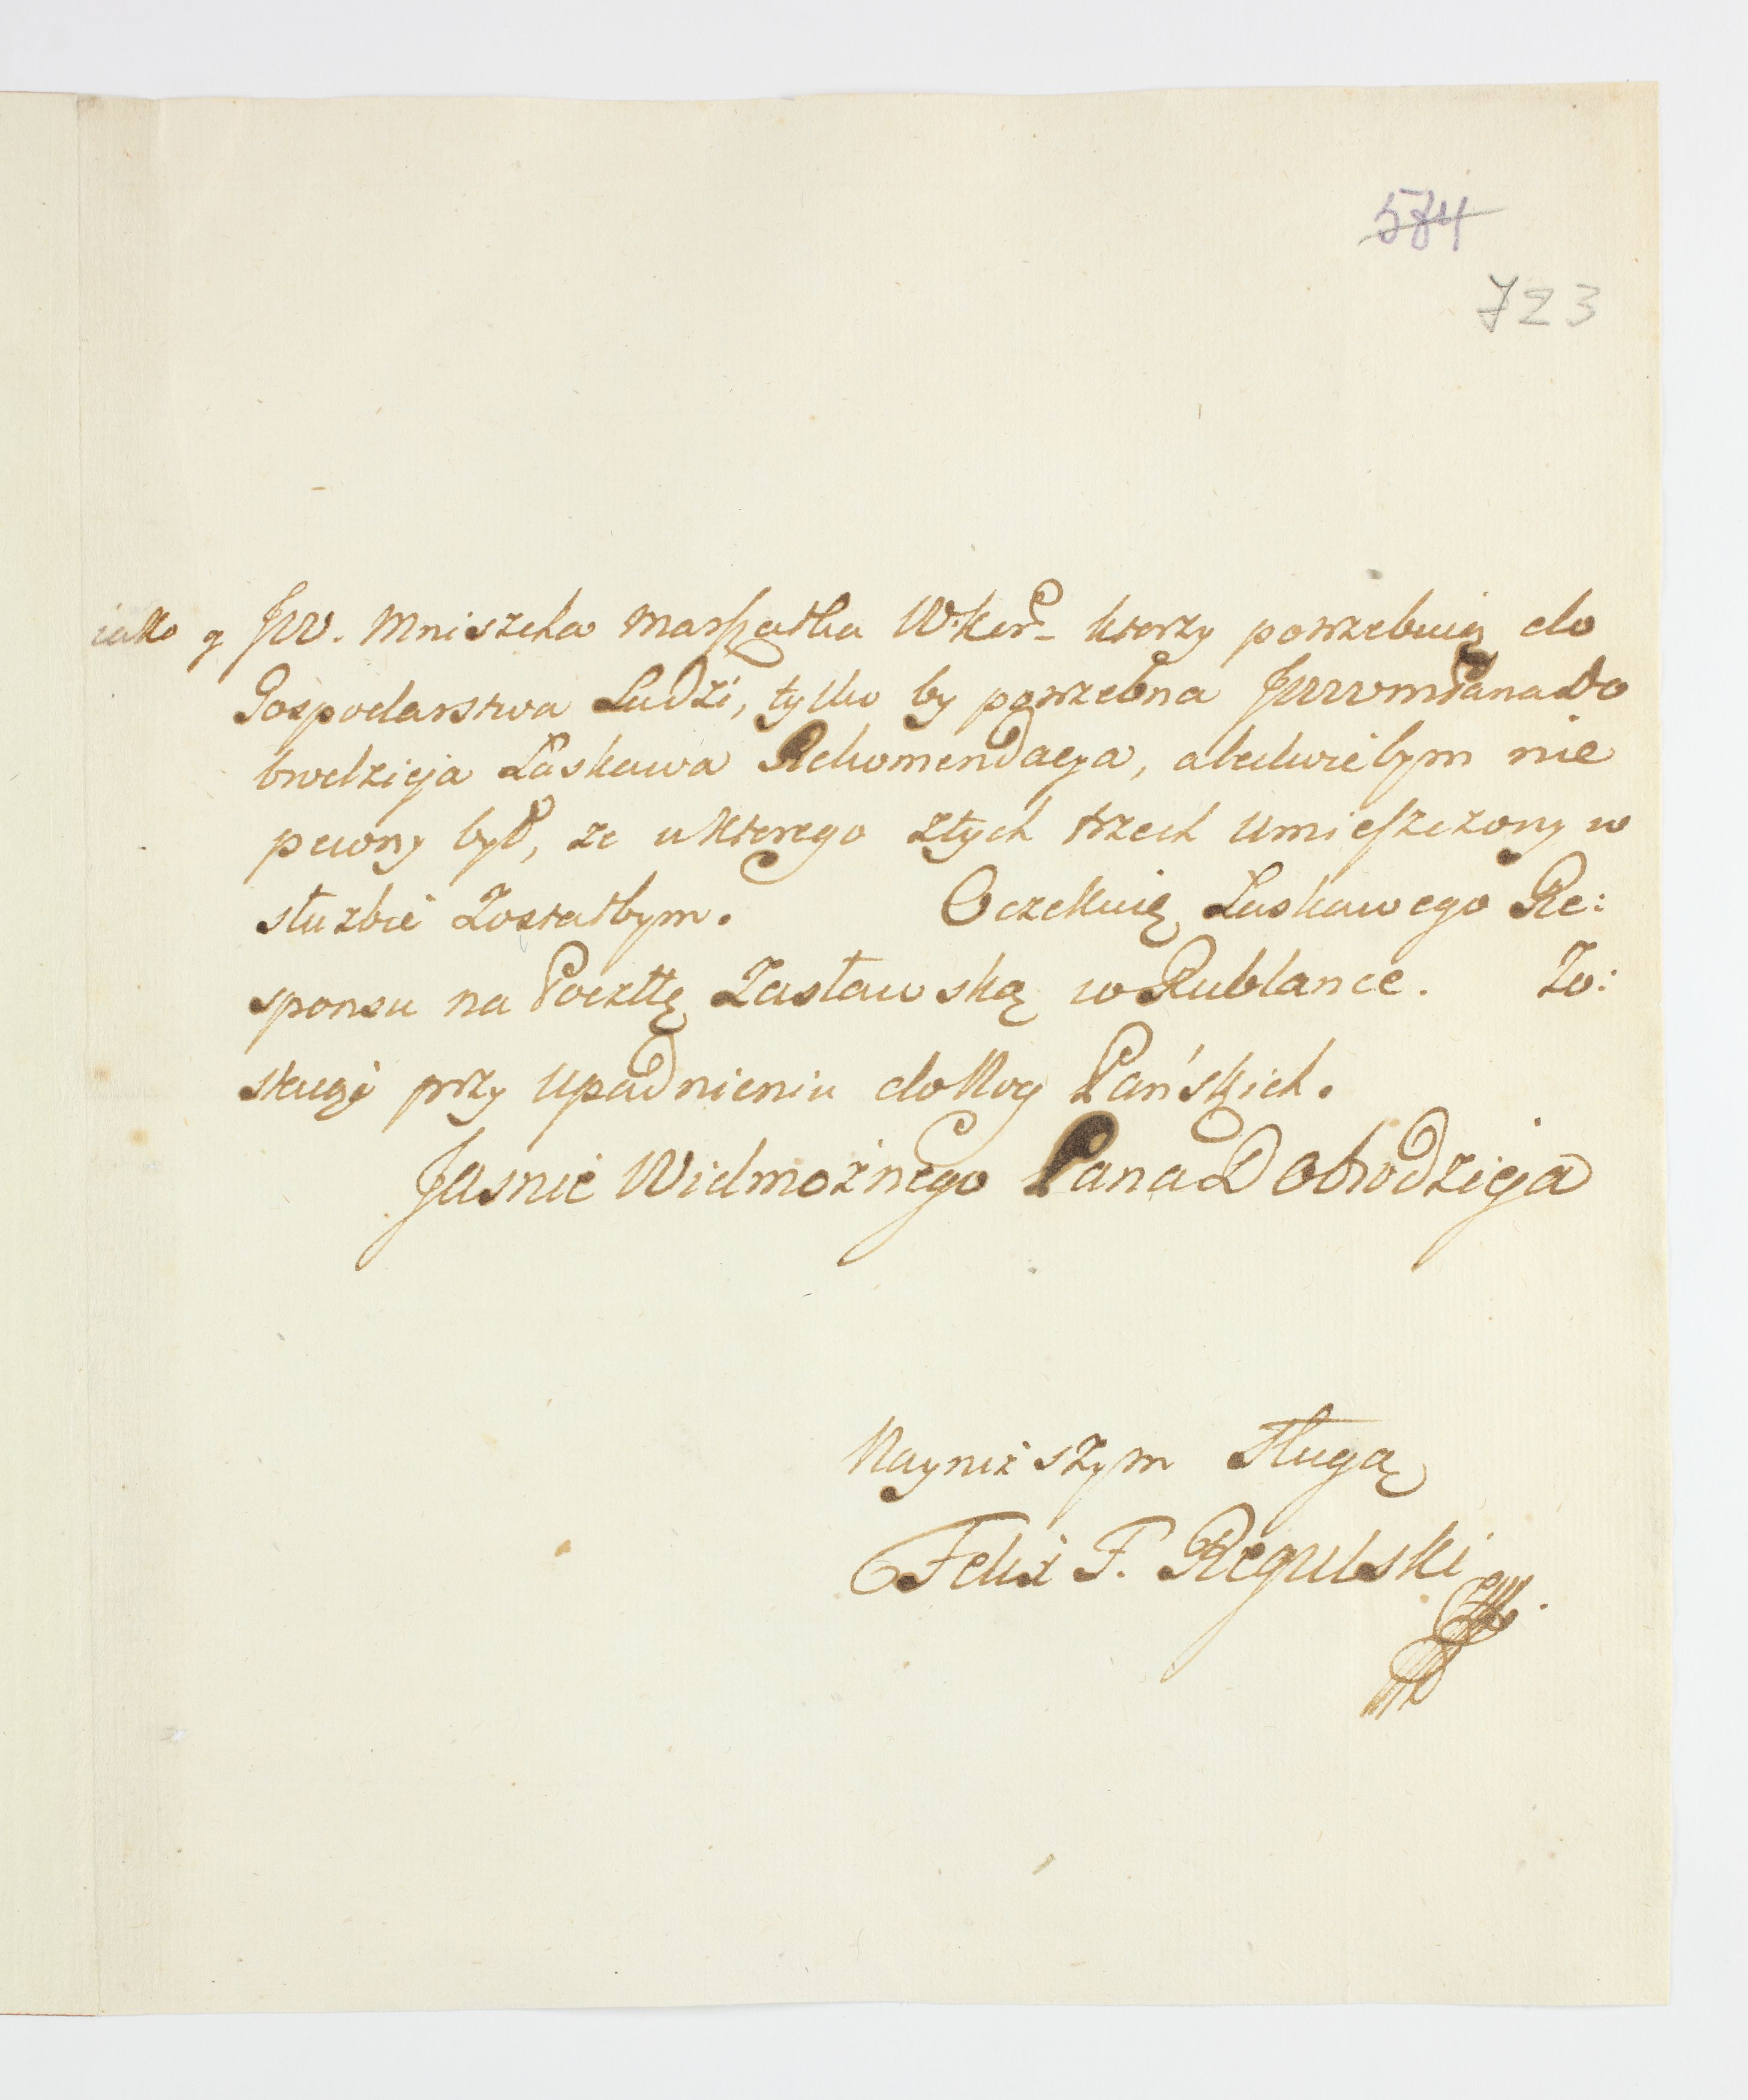 584
723
iako y JW. Mniszcha Marszałka W. Kor. ktorzy potrzebuią do
Gospodarstwa Ludzi, tylko by potrzebna JWWMPana Do
brodzieja Łaskawa Rekomendacya, aledwie bym nie
pewny był, ze u ktorego z tych trzech umieszczony w
służbie Zostałbym. Oczekuię Łaskawego Re:
sponsu na Pocztę Zasławską w Rublance. Zo:
staię przy upadnieniu do Nog Pańskich.
Jasnie Wielmożnego Pana Dobrodzieja
Nayniższym Sługą
Felix F. Regulski